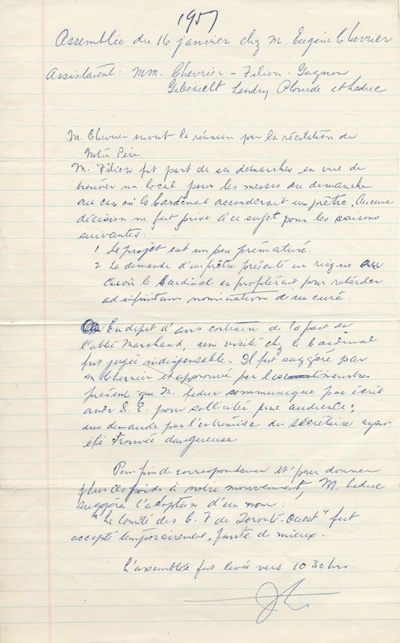 1957
Assemblée du 16 janvier chez M. Eugène Chevrier
Assistaient: MM. Chevrier - Filion - Gagnon
Gibeault Landry Plourde et Leduc
M. Chevrier ouvrit la réunion par la récitation du
Notre Père.
M. Filion fit part de ses démarches en vue de
trouver un local pour les messes du dimanche
au cas où le Cardinal accorderait un prêtre. Aucune
décision ne fut prise à ce sujet pour les raisons
suivantes:
1 Le projet est un peu prématuré.
2 La demande d'un prêtre présente un risque au
cas où le Cardinal en profiterait pour retarder
ad infinitum nomination d'un curé.
En dépit d'avis contraire de la part de
l'abbé Marchand, une visite chez le Cardinal
fut jugée indispensable. Il fut suggéré par
M Chevrier et approuvé par les membres
présents que M. Leduc communique par écrit
avec S. E. pour solliciter une audience;
une demande par l'entremise du secrétaire ayant
été trouvée dangereuse.
Pour fin de correspondance et pour donner
plus de poids à notre mouvement, M. Leduc
suggéra l'adoption d'un nom.
"Le Comité des C. F de Toronto-Ouest" fut
accepté temporairement, faute de mieux.
L'assemblée fut levée vers 10 30 hrs.